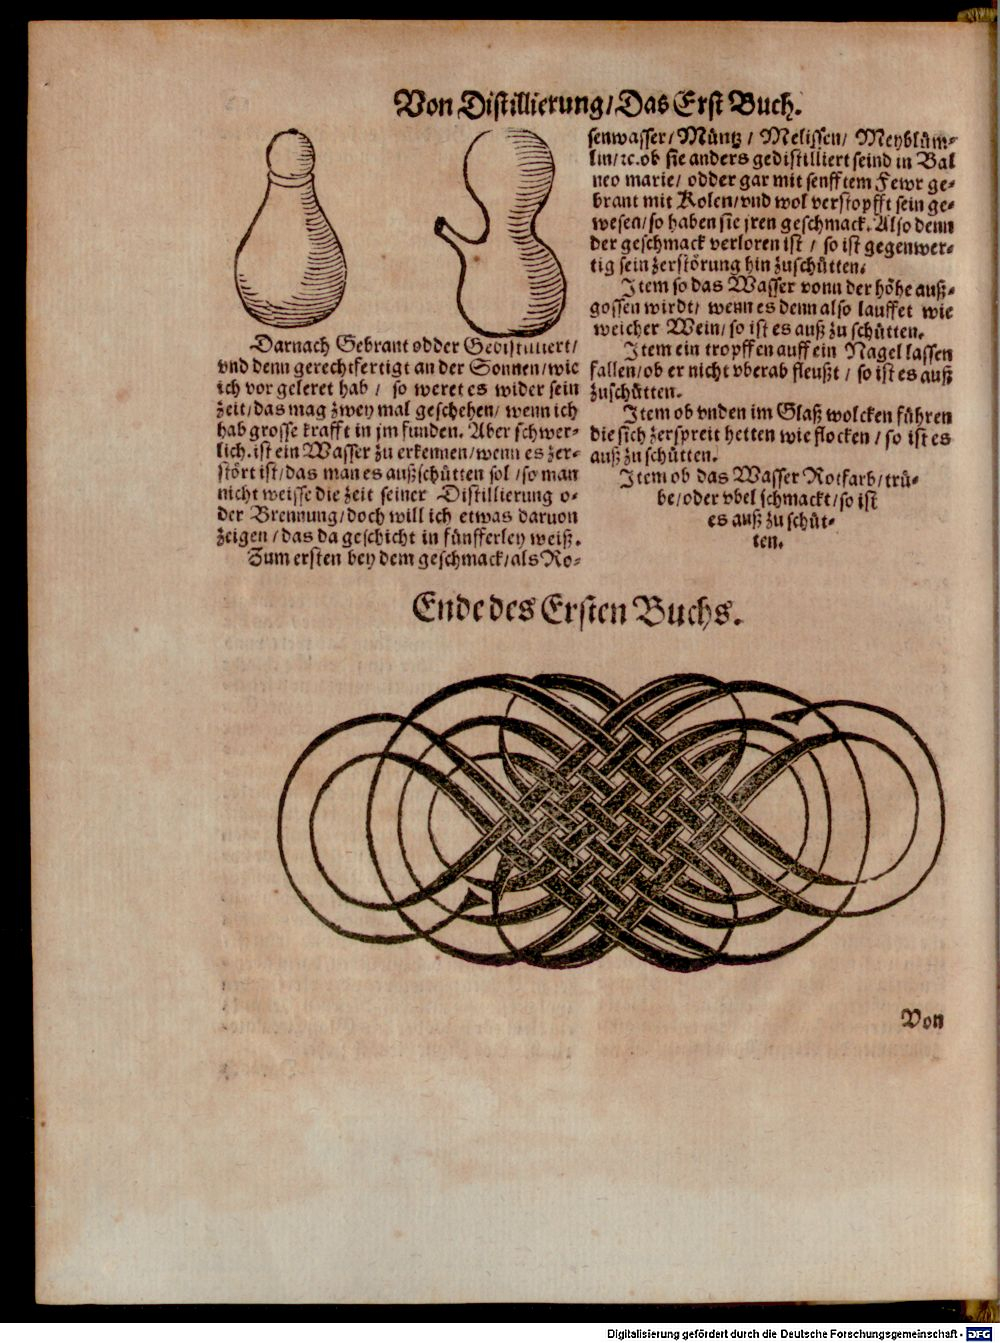 Von Distillierung/Das Erst Buch.
Darnach Gebrant odder Gedistilliert/
vnd denn gerechtfertigt an der Sonnen/wie
ich vor geleret hab / so weret es wider sein
zeit/das mag zwey mal geschehen/ wenn ich
hab grosse krafft in jm funden. Aber schwer-
lich. ist ein Wasser zu erkennen/wenn es zer-
stört ist/das man es außschütten sol /so man
nicht weisse die zeit seiner Distillierung o-
der Brennung/doch will ich etwas daruon
zeigen /das da geschicht in fünfferley weiß.
Zum ersten bey dem geschmack/als Ro-
senwasser/ Müntz / Melissen/ Meyblüm-
lin/ꝛc.ob sie anders gedistilliert seind in Bal
neo marie/ odder gar mit senfftem Fewr ge-
brant mit Kolen/vnd wol verstopfft sein ge-
wesen/so haben sie jren geschmack. Also denn
der geschmack verloren ist / so ist gegenwer-
tig sein zerstörung hin zuschütten.
Item so das Wasser vonn der höhe auß-
gossen wirdt/ wenn es denn also lauffet wie
weicher Wein/ so ist es auß zu schütten.
Item ein tropffen auff ein Nagel lassen
fallen/ob er nicht vberab fleußt / so ist es auß
zuschütten.
Item ob vnden im Glaß wolcken führen
die sich zerspreit hetten wie flocken / so ist es
auß zu schütten.
Item ob das Wasser Rotfarb/trü-
be/oder vbel schmackt/so ist
es auß zu schüt-
ten.
Ende des Ersten Buchs.
Von
Digitalisierung gefördert durch die Deutsche Forschungsgemeinschaft - DFG